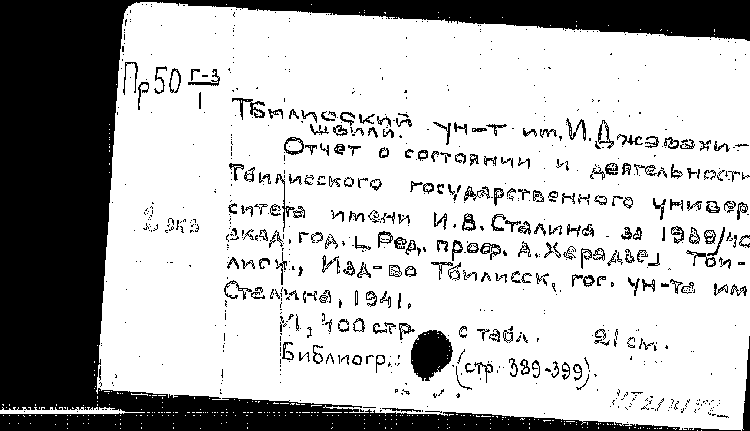 Пр50 Г-3
1
Тбилисский ун-т им. И. Джавахи-
швили.
Отчет о состоянии и деятельности
Тбилисского государственного универ
ситета имени И.В. Сталина за 1939/40
акад. год. [Ред. проф. А. Херадзе] Тби-
2 экз
лиси., Изд-во Тбилисск. гос. ун-та им
Сталина, 1941.
VI, 400 стр. с табл. 21 см.
Библиогр.: (стр. 389-399).